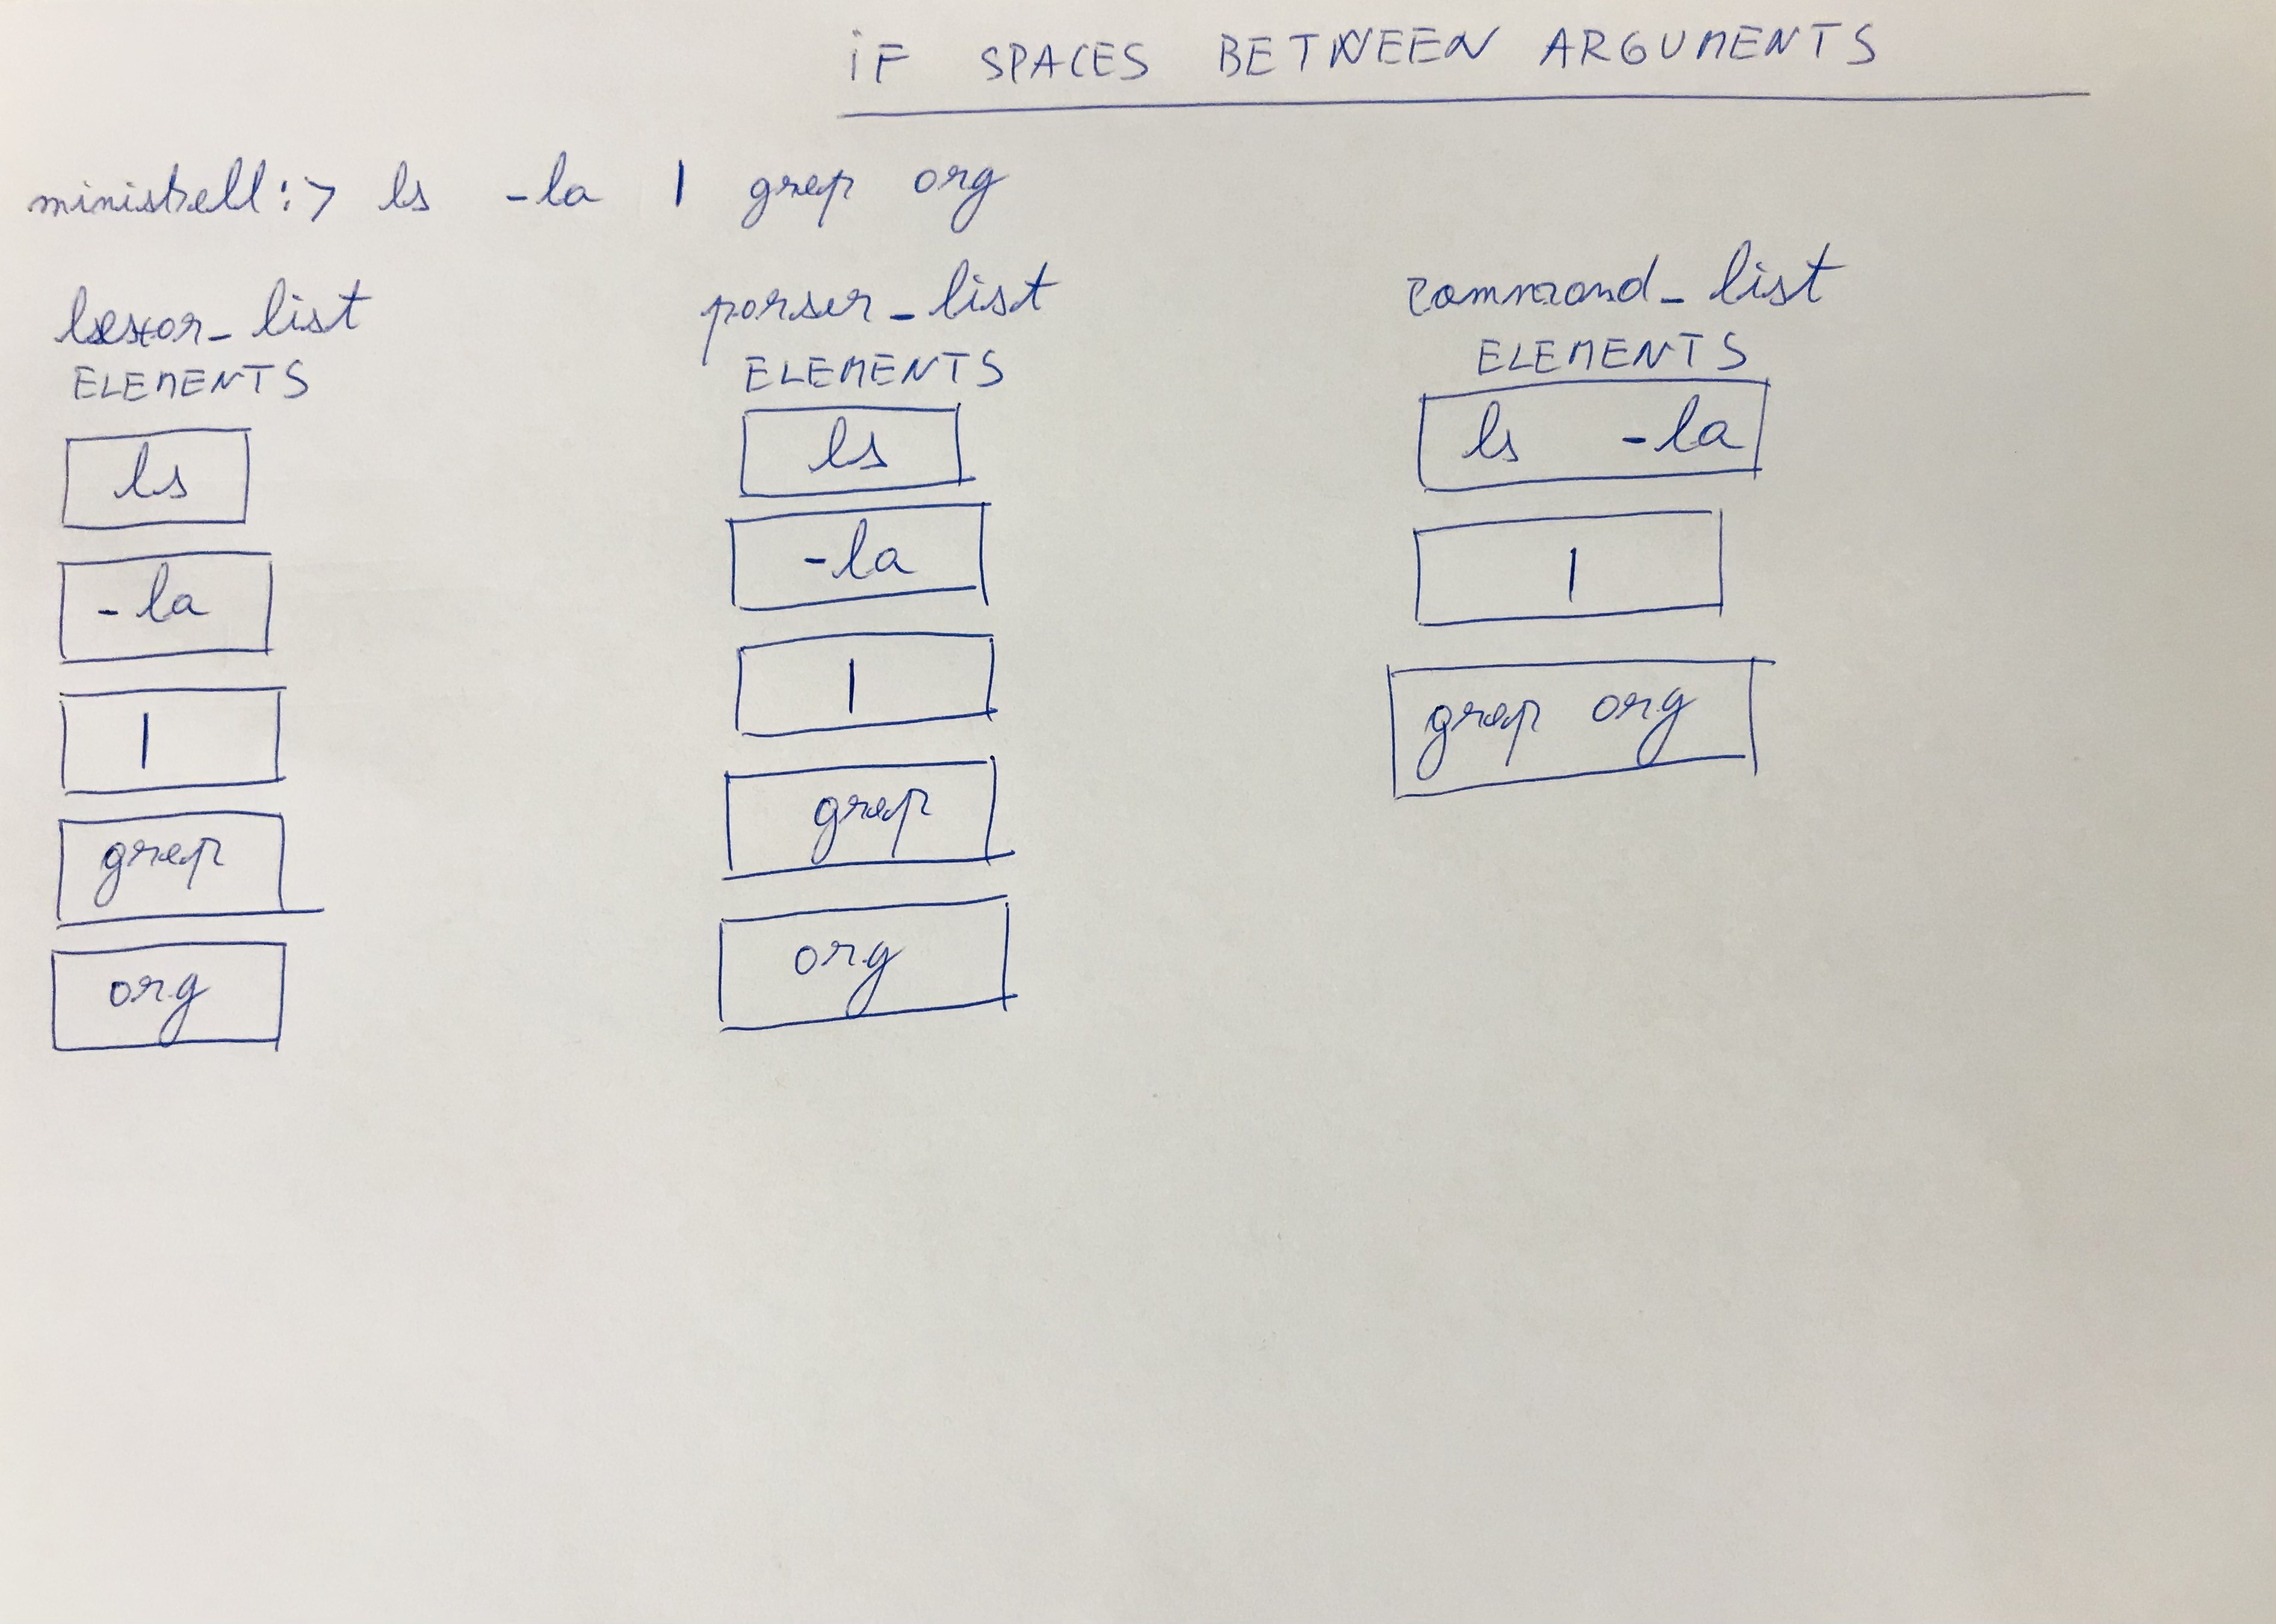 IF SPACES BETWEEN ARGUMENTS
minishell:> ls -la | grep org
lexor_list
ELEMENTS
ls
-la
|
grep
org
parser_list
ELEMENTS
ls
-la
|
grep
org
command_list
ELEMENTS
ls -la
|
grep org